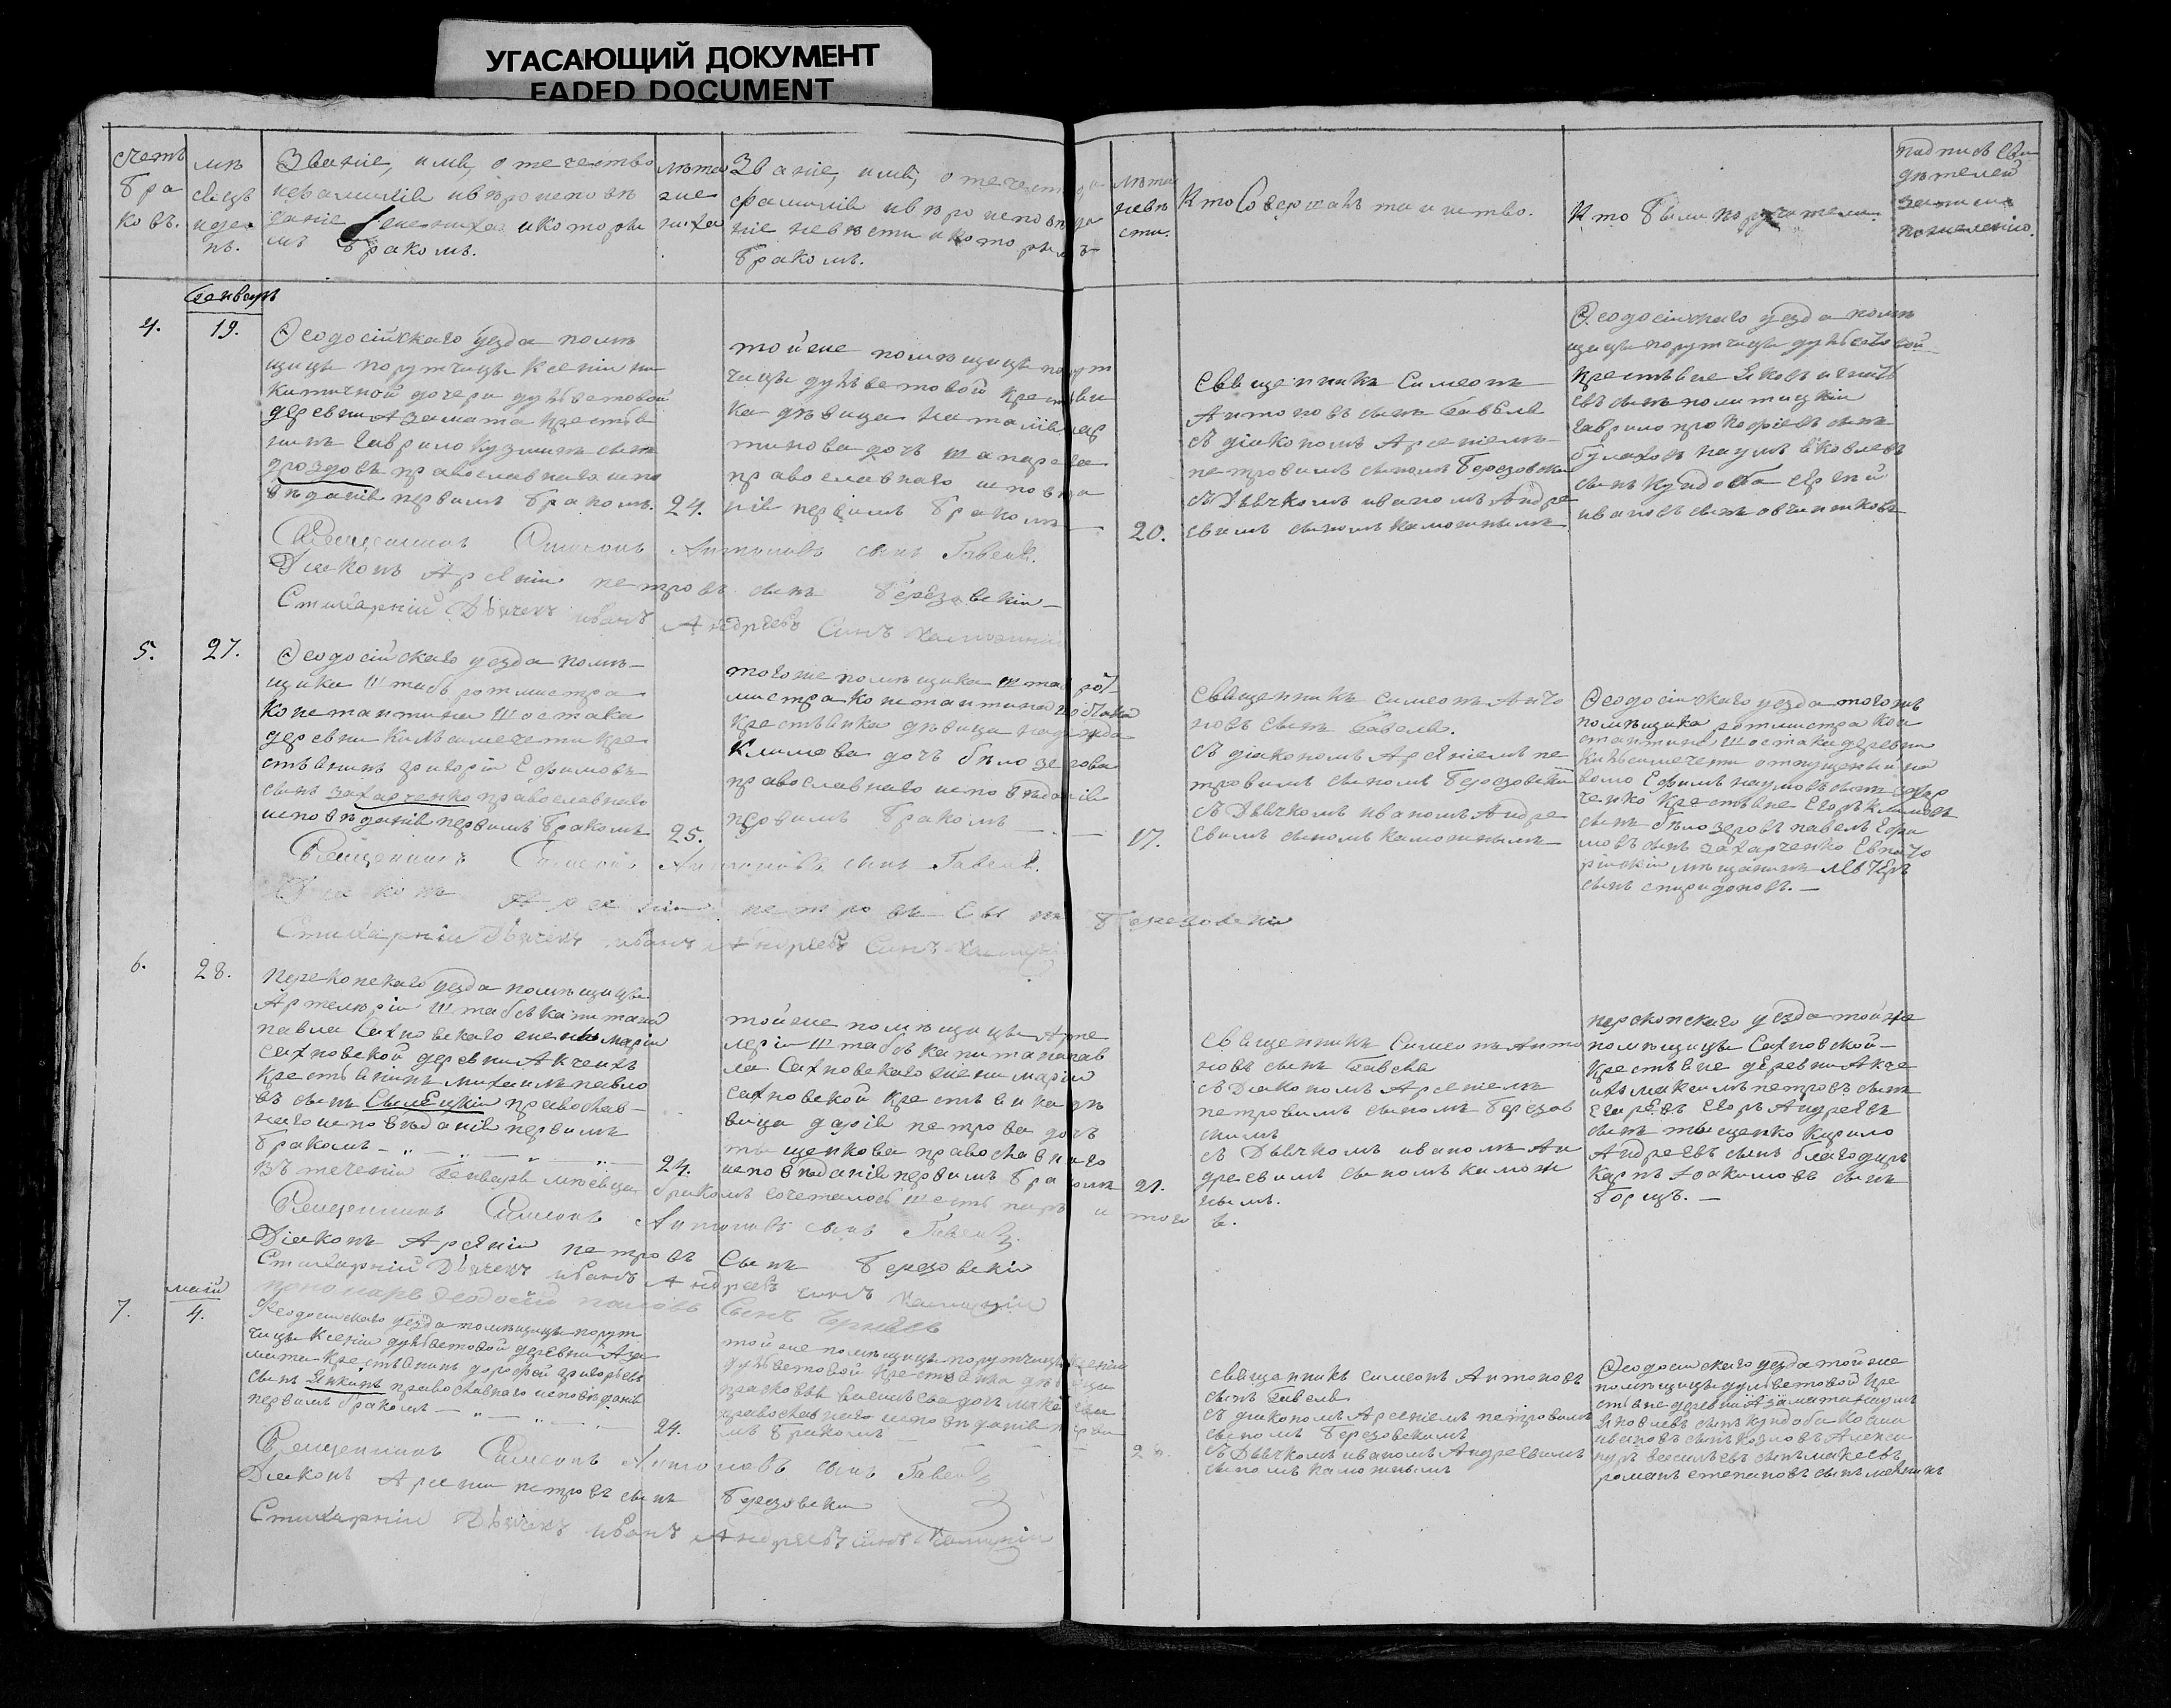 УГАСАЮЩИЙ ДОКУМЕНТ
FADED DOCUMENT
счетъ
бра
ковъ.
мѣ
сяцъ
и ден
ь.
Званіе, имя, отечество
и фамилія и вѣроисповѣ
даніе жениха и которы
мъ бракомъ.
лѣта
же
ниха
Званіе, имя, отечество
фамилія и вѣроисповѣда
ніе невѣсты и которымъ
бракомъ.
лѣта
невѣ
сты.
Кто Совершалъ таинство.
Кто были поручатели.
подписъ сви
дѣтелей
записи
по желанію.
генварь
4.
19.
Ѳеодосійскаго уезда помѣ
щицы порутчицы Ксеніи ни
китичной дочери дулветовой
деревни Азамата крестья
нинъ Гаврило Кузминъ сынъ
дроздовъ православнаго испо
вѣданія первымъ бракомъ.
24.
той же помѣщицы порут
чицы дулветовой крестьян
ка дѣвица наталія мар
тинова дочь
православнаго исповѣда
нія первымъ бракомъ
20.
Священникъ Симеонъ
Антоновъ сынъ Гавель
съ діакономъ Арсеніемъ
петровимъ сыномъ Березовски
съ Дьячкомъ иваномъ Андре
евимъ сыномъ камошнымъ
Ѳеодосійскаго уезда помѣ
щицы порутчицы дулветовой
крестьяне Яковъ
евъ сынъ
Гаврило прокофіевъ сынъ
булаховъ наумъ яковлевъ
сынъ Кундоба Сергѣй
ивановъ сынъ овчинниковъ
Священникъ Симеонъ Антоновъ сынъ Гавель.
Діаконъ Арсеній петровъ сынъ березовскій
Стихарній Дьячекъ иванъ Андреевъ Синъ камошній
5.
27.
Ѳеодосійскаго уезда помѣ
щика Штабъ ротмистра
Константина Шостака
деревни Кильсимечети кре
стьянинъ григорій Ефимовъ
сынъ захарченко православнаго
исповѣданія первымъ бракомъ
25.
того же помѣщика Штаб рот
мистра Константина шостака
крестьянка дѣвица надежда
Климова дочь бѣлозерова
православнаго исповѣданія
первымъ бракомъ
17.
Священникъ симеонъ Анто
новъ сынъ Гавель.
съ діакономъ Арсеніемъ пе
тровимъ сыномъ березовски
съ Дьячкомъ иваномъ Андре
евимъ сыномъ камошнымъ
Ѳеодосійскаго уезда того же
помѣщика ротмистра кон
стантина Шостака деревни
Кильсимечети отпущенный на
волю Ефимъ наумовъ сынъ захар
ченко крестьяне Егоръ климовъ
сынъ бѣлозеровъ павелъ Ефи
мовъ сынъ захарченко Евпато
рійскій мѣщанинъ
сынъ спиридоновъ.
Священникъ Симеонъ Антоновъ сынъ Гавель.
Діаконъ Арсеній петровъ Сынъ березовскій
Стихарній Дьячекъ иванъ Андреевъ Синъ
6.
28.
Перекопскаго уезда помѣщицы
Артелеріи Штабсъ капитана
павла Сахновскаго жены маріи
сахновской деревни Акчеихъ
крестьянинъ михаилъ павло
въ сынъ православ
наго исповѣданія первымъ
бракомъ
24.
той же помѣщицы Арте
леріи Штабсъ капитана пав
ла Сахновскаго жени маріи
сахновской крестьянка дѣ
вица дарія петрова дочь
тищенкова православнаго
исповѣданія первымъ бракомъ
21.
Священникъ Симеонъ Анто
новъ сынъ Гавель
съ Діакономъ Арсеніемъ
петровимъ сыномъ березов
скимъ
съ Дьячкомъ иваномъ Ан
дреевимъ сыномъ камош
нымъ.
перекопскаго уезда той же
помѣщицы Сахновской
крестьяне деревни Акче
ихъ максимъ петровъ сынъ
Егоръ Андреевъ
сынъ тищенко Кирило
Андреевъ сынъ благодиръ
Карпъ Іоакимовъ сынъ
борщъ.
въ теченіи Генваря мѣсяца бракомъ сочеталось шесть паръ итого 6.
Священникъ Симеонъ Антоновъ сынъ Гавель.
Діаконъ Арсеній петровъ Сынъ березовскій
Стихарній Дьячекъ иванъ Андреевъ синъ
пономарь Ѳеодосій Сынъ
маій
7.
4.
Ѳеодосійскаго уезда помѣщицы порут
чицы Ксеніи дулветовой деревни Аза
мата крестьянинъ дорофей григорьевъ
сынъ православнаго исповѣданія
первымъ бракомъ
24.
той же помѣщицы порутчицы ксеніи
дулветовой крестьянка дѣвица
прасковья васильева дочь макеева
православнаго исповѣданія первы
мъ бракомъ
священникъ симеонъ Антоновъ
сынъ Гавель
съ діакономъ Арсеніемъ петровимъ
сыномъ березовскимъ
съ Дьячкомъ иваномъ Андреевимъ
сыномъ камошнымъ
Ѳеодосійскаго уезда той же
помѣщицы дулветовой кре
стьяне деревни Азамата наумъ
Яковлевъ сынъ кундоба Козма
ивановъ сынъ козловъ Алексан
дръ васильевъ сынъ макеевъ
романъ степановъ сынъ
Священникъ Симеонъ Антоновъ сынъ Гавель
Діаконъ Арсеній петровъ сынъ березовскій
Стихарній Дьячекъ иванъ Андреевъ синъ